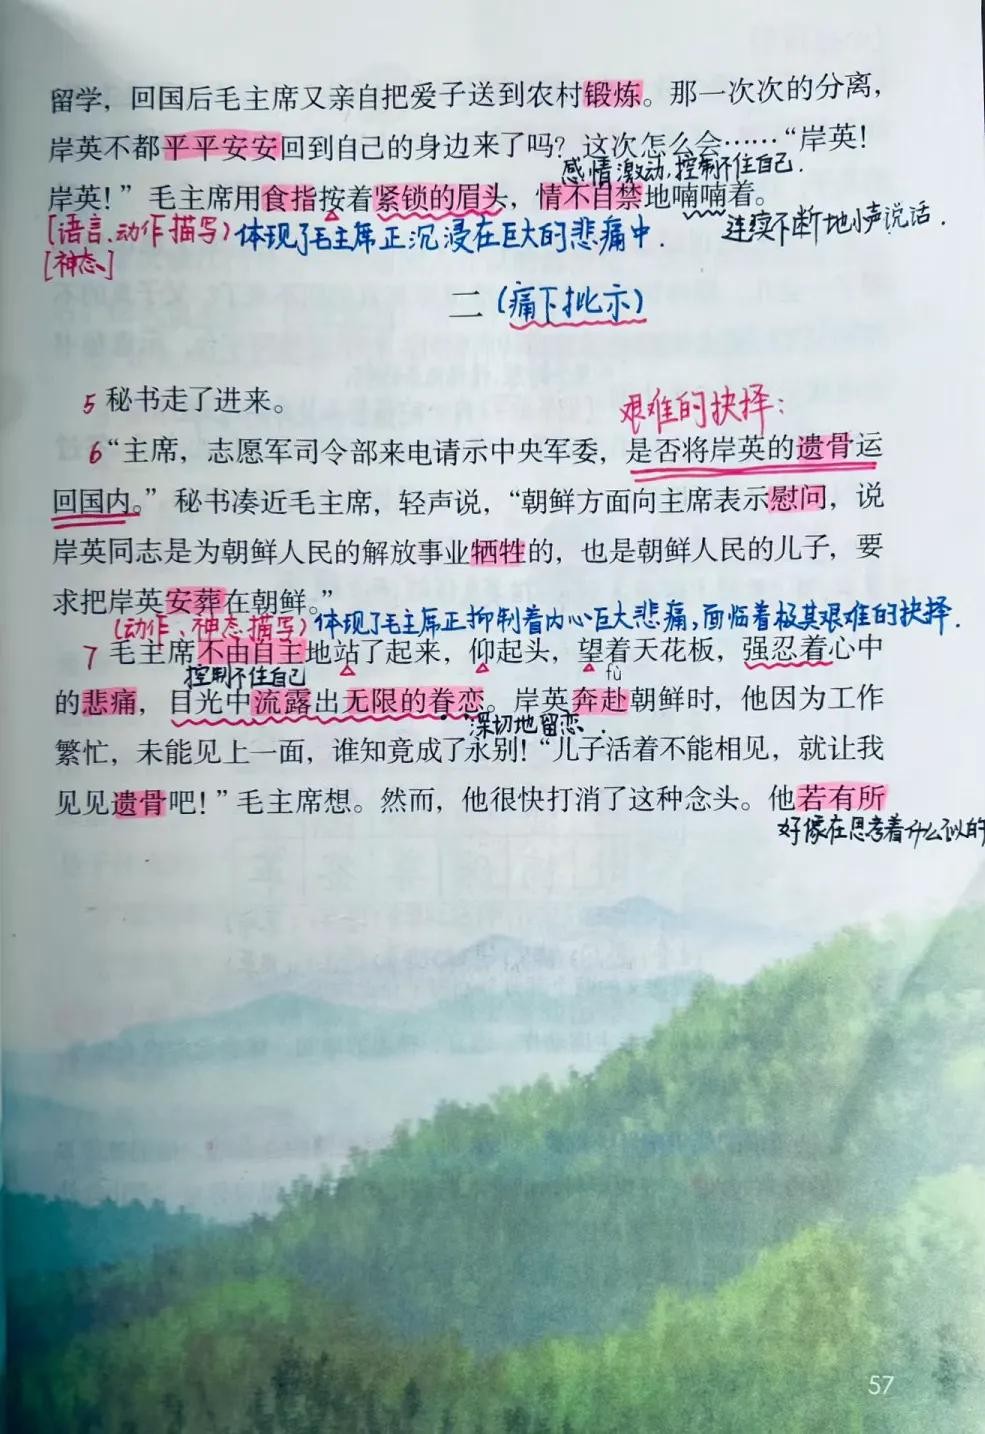 留学，回国后毛主席又亲自把爱子送到农村锻炼。那一次次的分离，
岸英不都平平安安回到自己的身边来了吗？这次怎么会……“岸英！
感情激动，控制不住自己．
岸英！”毛主席用食指按着紧锁的眉头，情不自禁地喃喃着。
[语言、动作描写)体现了毛主席正沉浸在巨大的悲痛中．
连续不断地小声说话．
[神态]
二(痛下批示)
艰难的抉择：
5 秘书走了进来。
6 “主席，志愿军司令部来电请示中央军委，是否将岸英的遗骨运
回国内。”秘书凑近毛主席，轻声说，“朝鲜方面向主席表示慰问，说
岸英同志是为朝鲜人民的解放事业牺牲的，也是朝鲜人民的儿子，要
求把岸英安葬在朝鲜。”
(动作、神态描写)体现了毛主席正抑制着内心巨大悲痛，面临着极其艰难的抉择．
7 毛主席不由自主地站了起来，仰起头，望着天花板，强忍着心中
控制不住自己
fù
的悲痛，目光中流露出无限的眷恋。岸英奔赴朝鲜时，他因为工作
深切地留恋．
繁忙，未能见上一面，谁知竟成了永别！“儿子活着不能相见，就让我
见见遗骨吧！”毛主席想。然而，他很快打消了这种念头。他若有所
好像在思考着什么似的
57